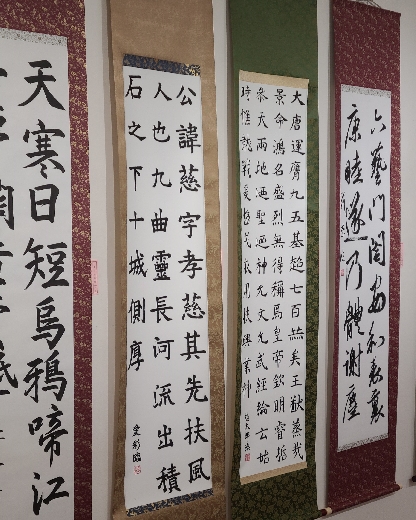 六藝門閭
康睦遂乃體謝塵
大唐運膺九五基超七百赫矣王猷蒸哉
景命鴻名盛烈無得稱焉皇帝欽明睿哲
參天兩地迺聖迺神允文允武經綸云始
時惟龍戰爰整戎衣用扶興業神
公諱慈字孝慈其先扶風
人也九曲靈長河流出積
石之下十城側厚
天寒日短烏鴉啼江